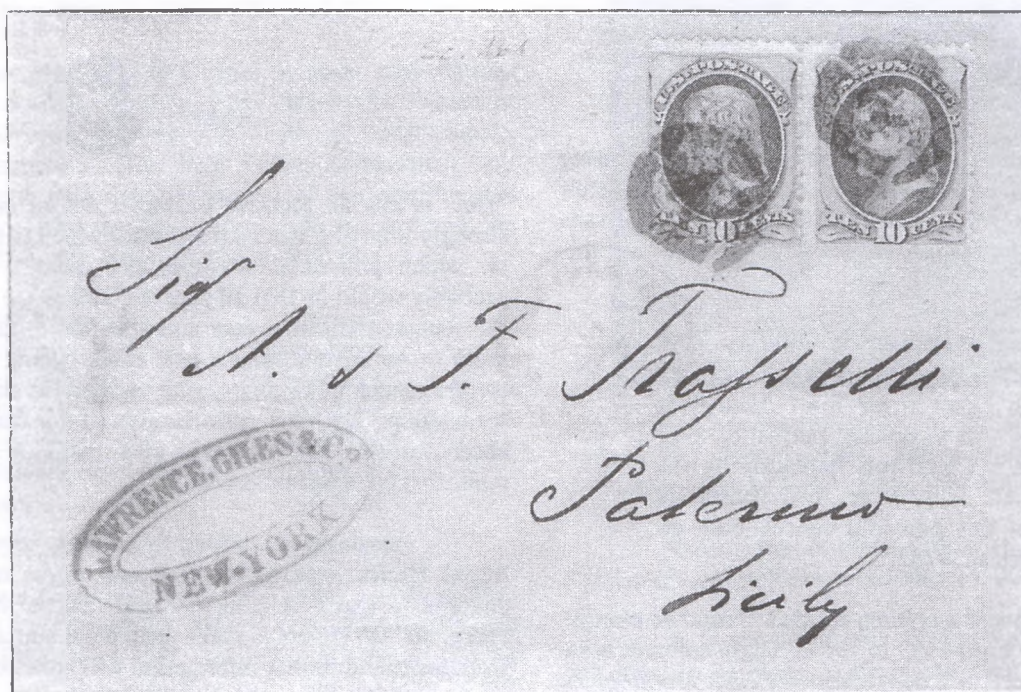 U.S. POSTAGE
TEN 10 CENTS
U.S. POSTAGE
TEN 10 CENTS
Sig
A. & F. Trasselli
Palermo
Sicily
LAWRENCE, GILES & Co
NEW-YORK